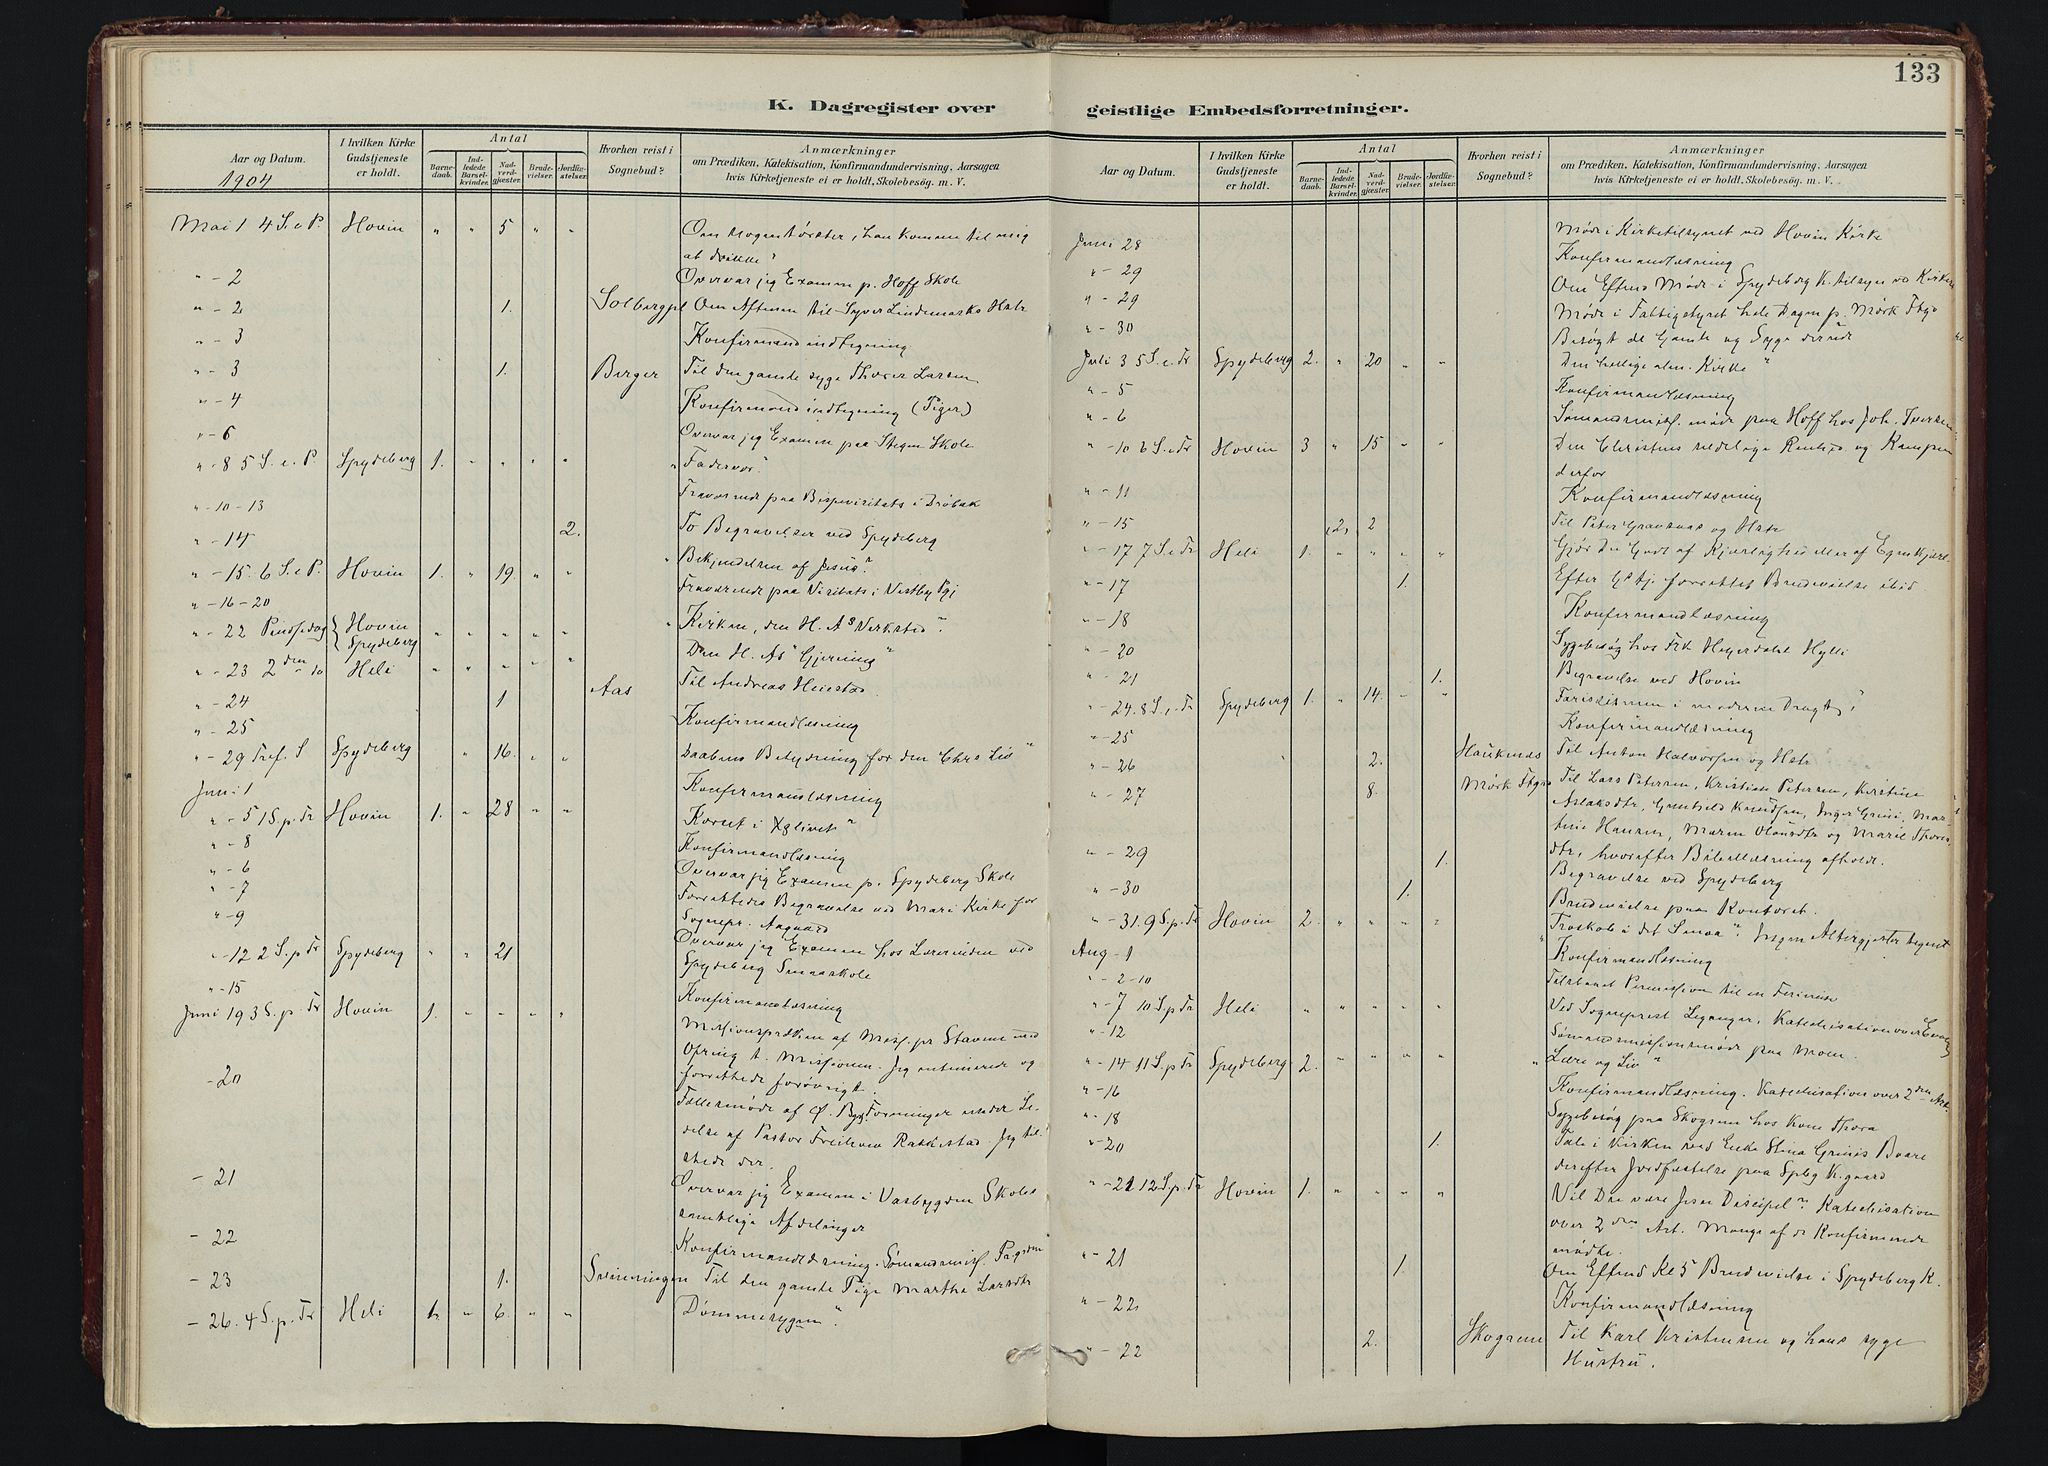 133
K. Dagregister over geistlige Embedsforretninger.
Aar og Datum. I hvilken Kirke Gudstjeneste er holdt. Antal Barnedaab. Indledede Barselkvinder. Nadverdgjæster. Brudevielser. Jordfæstelser. Hvorhen reist i Sognebud? Anmærkninger om Prædiken, Katekisation, Konfirmandundervisning, Aarsagen hvis Kirketjeneste ei er holdt, Skolebesøg. m. V.
1904
Mai 1 4 S. e P. Hovin " " 5 " " Om nogen tørster, han komme til mig
at drikke"
" - 2 Overvar jeg Examen p. Hoff Skole
" - 2 1. Solbergpl Om Aftenen til Syver Lindemarks Hstr
" - 3 Konfirmandindtegning
" - 3 1. Berger Til den gamle syge Thorer Larsen
" - 4 Konfirmandindtegning (Piger)
" - 6 Overvar jeg Examen paa Stegen Skole
" - 8 5 S. e. P. Spydeberg 1. " " " " "Fadervor".
" - 10 - 13 Fraværende paa Bispevisitats i Drøbak
" - 14 2. To Begravelser ved Spydeberg
" - 15. 6 S. e P. Hovin 1. " 19. " " "Bekjendelsen af Jesus."
" - 16 - 20 Fraværende paa Visitats i Vestby Pgj
" - 22 Pindsedag Hovin Spydeberg " " " " " "Kirken, den H. As Verksted".
" - 23 2den do Heli " " " " " Den H. As "Gjerning"
" - 24 1 Aas Til Andreas Heiestad.
" - 25 Konfirmandlæsning
" - 29 Tref. S Spydeberg " 16. " " Daabens Betydning for den Chrs Liv"
Juni 1 Konfirmandlæsning
" - 5 1 S. p. Tr Hovin 1. " 28 " " Korset i Xslivet"
" - 8 Konfirmandlæsning
" - 6 Overvar jeg Examen p. Spydeberg Skole
" - 7 Forrettedes Begravelse ved Mari Kirke for
" - 9 Sognepr. Aagaard
" - 12 2 S. p Tr Spydeberg " " 21 Overvar jeg Examen hos Lærerinden ved
Spydeberg Smaaskole
" - 15 Konfirmandlæsning
Juni 19 3 S. p. Tr Hovin 1. " " " " Missionsprædiken af Miss. pr Stavem med
Ofring t. Missionen. Jeg intimerede og
forrettede forøvrigt.
- 20 Fællesmøde af Ø. Bgs Foreninger under Le-
delse af Pastor Rakkestad. Jeg til-
stede der.
- 21 Overvar jeg Examen i Vasbygden Skoles
samtlige Afdelinger
- 22 Konfirmandlæsning. Sømandsmiss. Pgdn
- 23 1. Sveiningen Til den gamle Pige Martha Larsdtr
- 26. 4 S. p. Tr Heli 1. " 6. " " Dømmesygen".
Aar og Datum. I hvilken Kirke Gudstjeneste er holdt. Antal Barnedaab. Indledede Barselkvinder. Nadverdgjæster. Brudevielser. Jordfæstelser. Hvorhen reist i Sognebud? Anmærkninger om Prædiken, Katekisation, Konfirmandundervisning, Aarsagen hvis Kirketjeneste ei er holdt, Skolebesøg. m. V.
Juni 28 Møde i Kirketilsynet ved Hovin Kirke
" - 29 Konfirmandlæsning
" - 29 Om Eftmd Møde i Spydeberg K. tilsyn vd Kirken
" - 30 Møde i Fattigstyret hele Dagen p. Mørk Ftgd
Besøgt de Gamle og Syge derude
Juli 3 5 S. e. Tr Spydeberg 2. " 20 " " Den hellige alm. Kirke"
" - 5 Konfirmandlæsning
" - 6 Sømandsmiss. møde paa Hoff hos Joh.
" - 10 6 S. e Tr Hovin 3 " 15 " " Den Christens sedelige Renhed og Kampen
derfor
" - 11 Konfirmandlæsning
" - 15 2 2 Til Peter Gravsnas og Hstr
" - 17 7 S. e Tr Heli 1. " " " " Gjør Du Godt af Kjærlighed eller af Egenkjærl.
" - 17 1. Efter Gstj. forrettet Brudevielse ibid.
" - 18 Konfirmandlæsning
" - 20 Sygebesøg hos Frk Heyerdahl Hylli
" - 21 1. Begravelse ved Hovin
" - 24. 8 S. e. Tr Spydeberg 1. " 14. " " Fariseismen i moderne Dragt"
" - 25 Konfirmandlæsning
" - 26 2. Haukenæs Til Anton Halvorsen og Hstr
" - 27 8. Mørk Ftgrd Til Lars Petersen, Kristian Petersen, Kirstine
Aslaksdtr, Gunhild Knudsen, Inger Grini, Mar-
tine Hansen, Maren Olausdtr og Marie Thores-
dtr, hvorefter Bibellæsning afholdt.
" - 29 1. Begravelse ved Spydeberg
" - 30 1. Brudevielse paa Kontoret.
" - 31. 9 S. p. Tr Hovin 2. " " " " "Troskab i det Smaa". Ingen Altergjester tegnet
Aug - 1 Konfirmandlæsning
" - 2 - 10 Tilstaaet Permission til en Ferireise
" - 7 10 S. p Tr Heli " " " " " Ved Sogneprest Leganger, Katechisation over Evang
" - 12 Sømandsmissionsmøde paa Moen.
" - 14 11 S. p Tr Spydeberg 2. " " " " "Lære og Liv"
" - 16 Konfirmandlæsning. Katechisation over 2den Art.
" - 18 Sygebesøg paa Skogsrud hos Kone Thora
" - 20 1. Tale i Kirken ved Enke Stina Grinis Baare
derefter Jordfæstelse paa Spbg K.gaard
" - 21 12 S. p. Tr Hovin 1. " " " " Vil Du være Jesu Discipel" Katechisation
over 2den Art. Mange af de Konfirmerede
mødte.
" - 21 1. Om Eftmd Kl 5 Brudevielse i Spydeberg K.
" - 22 Konfirmandlæsning
" - 22 2. Skogsrud Til Karl Kristensen og hans syge
Hustru.